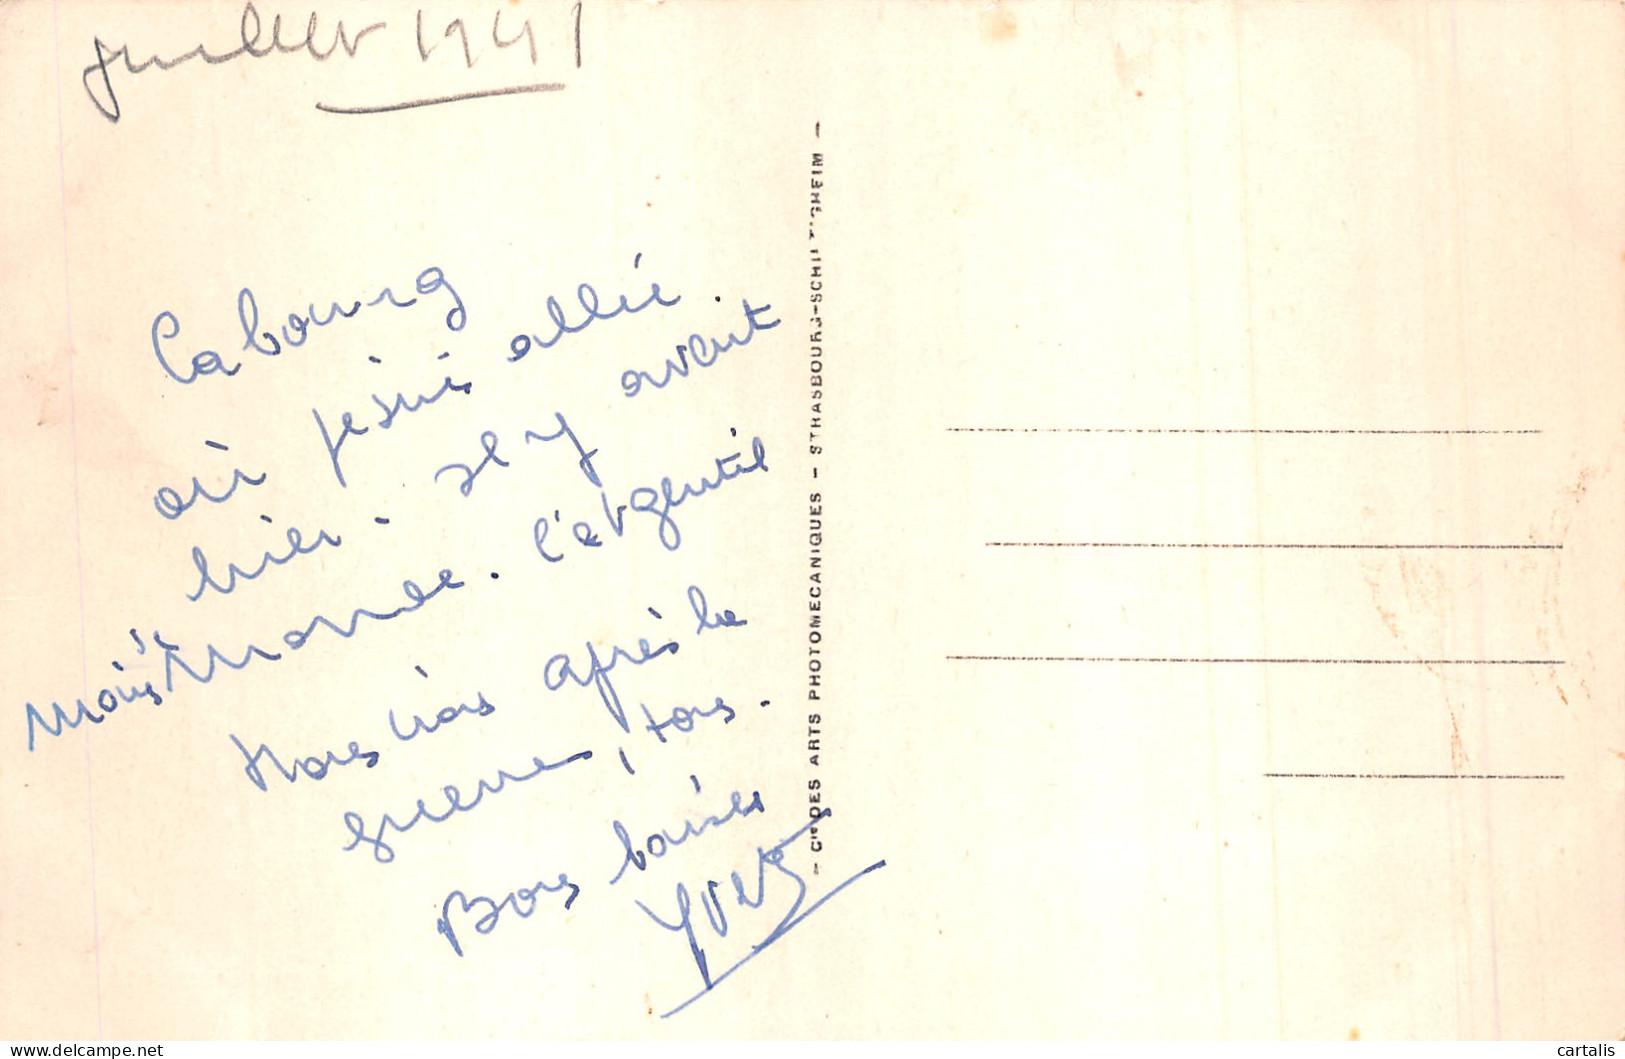 juillet 1941
Cabourg
où je suis allé
hier. Il y avait
moins de monde. C'est gentil
Nous irons après la
guerre, tous.
Bons baisers
Yves
— Cie DES ARTS PHOTOMECANIQUES — STRASBOURG-SCHILTIGHEIM —
cartalis